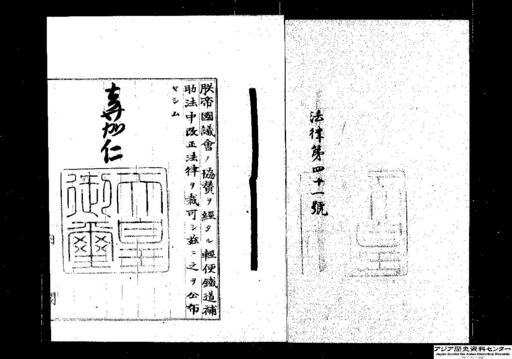 法律第四十一號
朕帝國議會ノ協賛ヲ經タル輕便鐵道補
助法中改正法律ヲ裁可シ茲ニ之ヲ公布
セシム
嘉仁
天皇
御璽
アジア歴史資料センター
Japan Center for Asian Historical Records